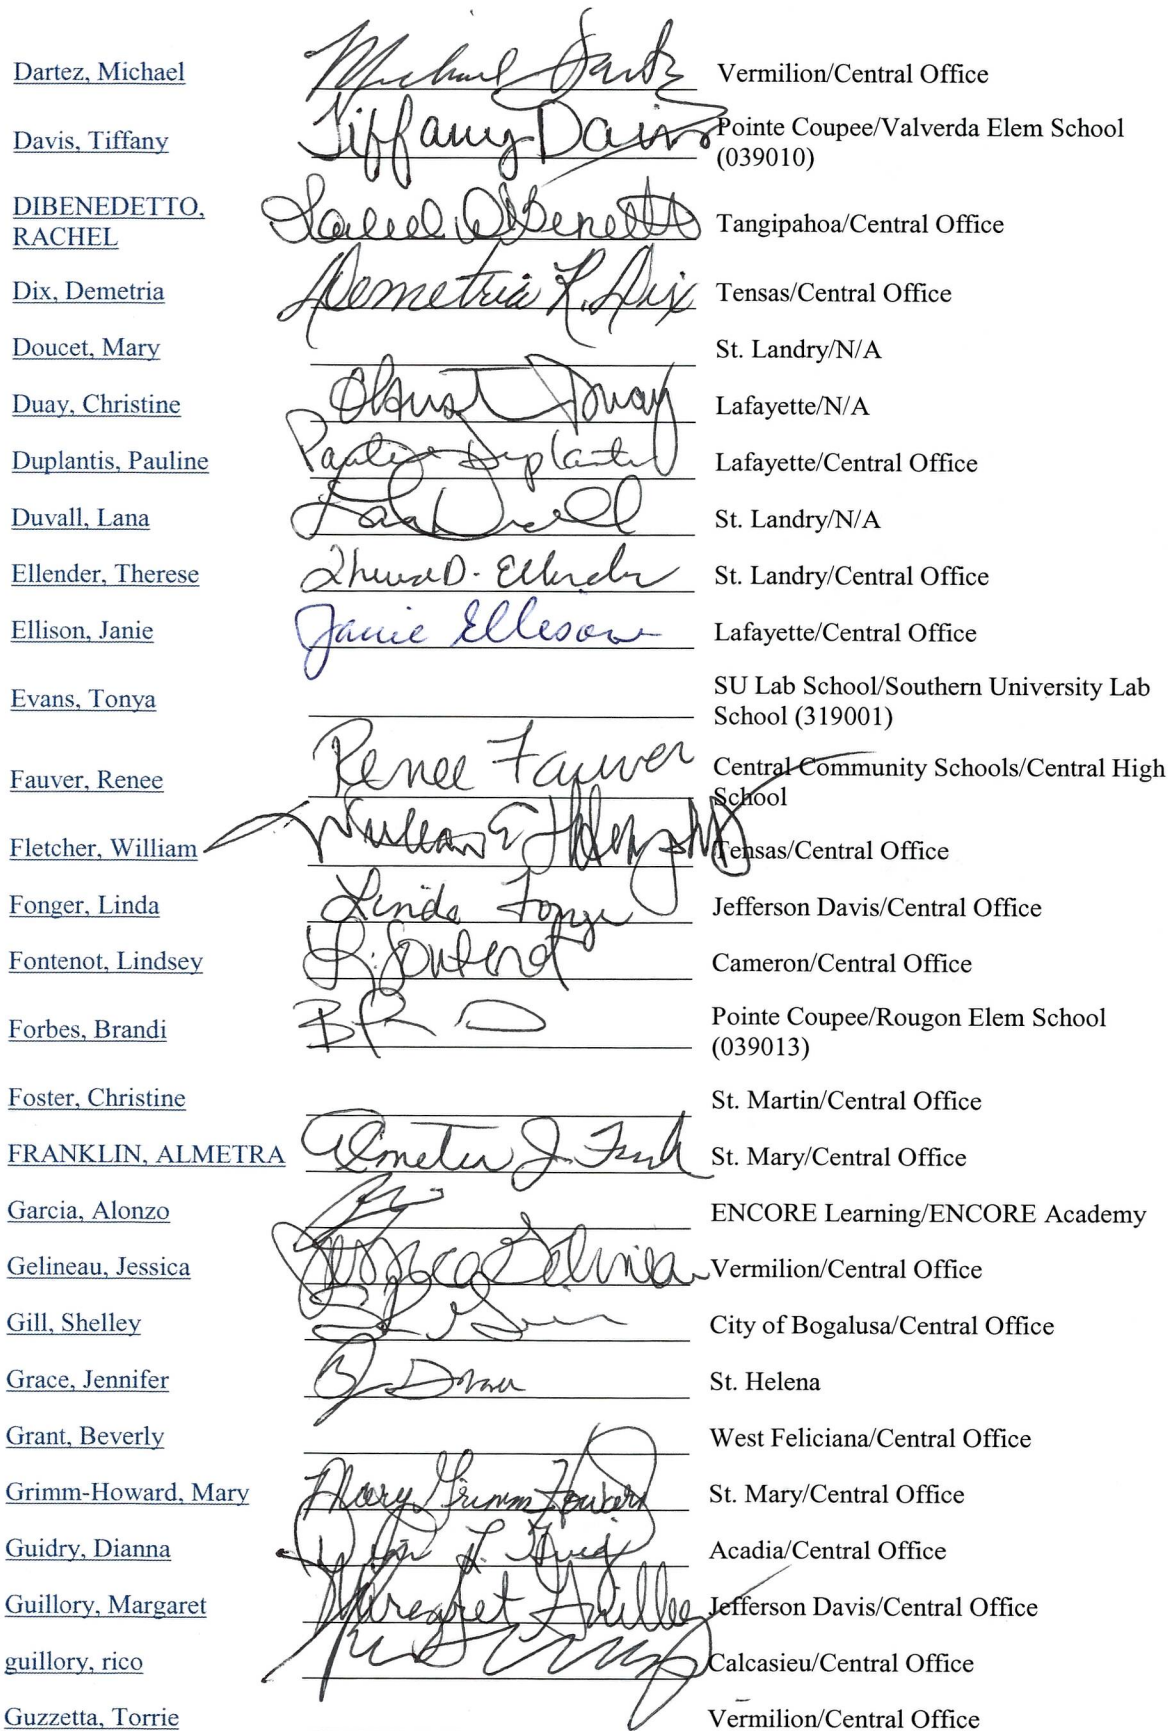 Dartez, Michael Michael Dartz Vermilion/Central Office
Davis, Tiffany Tiffany Davis Pointe Coupee/Valverda Elem School
(039010)
DIBENEDETTO,
RACHEL Tangipahoa/Central Office
Dix, Demetria Demetria K. Dix Tensas/Central Office
Doucet, Mary St. Landry/N/A
Duay, Christine Duay Lafayette/N/A
Duplantis, Pauline Duplantis Lafayette/Central Office
Duvall, Lana Lana Duvall St. Landry/N/A
Ellender, Therese Therese D. Ellender St. Landry/Central Office
Ellison, Janie Janie Ellison Lafayette/Central Office
Evans, Tonya SU Lab School/Southern University Lab
School (319001)
Fauver, Renee Renee Fauver Central Community Schools/Central High
School
Fletcher, William William E Tensas/Central Office
Fonger, Linda Linda Fonger Jefferson Davis/Central Office
Fontenot, Lindsey L. Fontenot Cameron/Central Office
Forbes, Brandi Pointe Coupee/Rougon Elem School
(039013)
Foster, Christine St. Martin/Central Office
FRANKLIN, ALMETRA Almetra J. St. Mary/Central Office
Garcia, Alonzo ENCORE Learning/ENCORE Academy
Gelineau, Jessica Jessica Gelineau Vermilion/Central Office
Gill, Shelley City of Bogalusa/Central Office
Grace, Jennifer St. Helena
Grant, Beverly West Feliciana/Central Office
Grimm-Howard, Mary Mary Grimm Howard St. Mary/Central Office
Guidry, Dianna Acadia/Central Office
Guillory, Margaret Margaret Guillory Jefferson Davis/Central Office
guillory, rico Calcasieu/Central Office
Guzzetta, Torrie Vermilion/Central Office